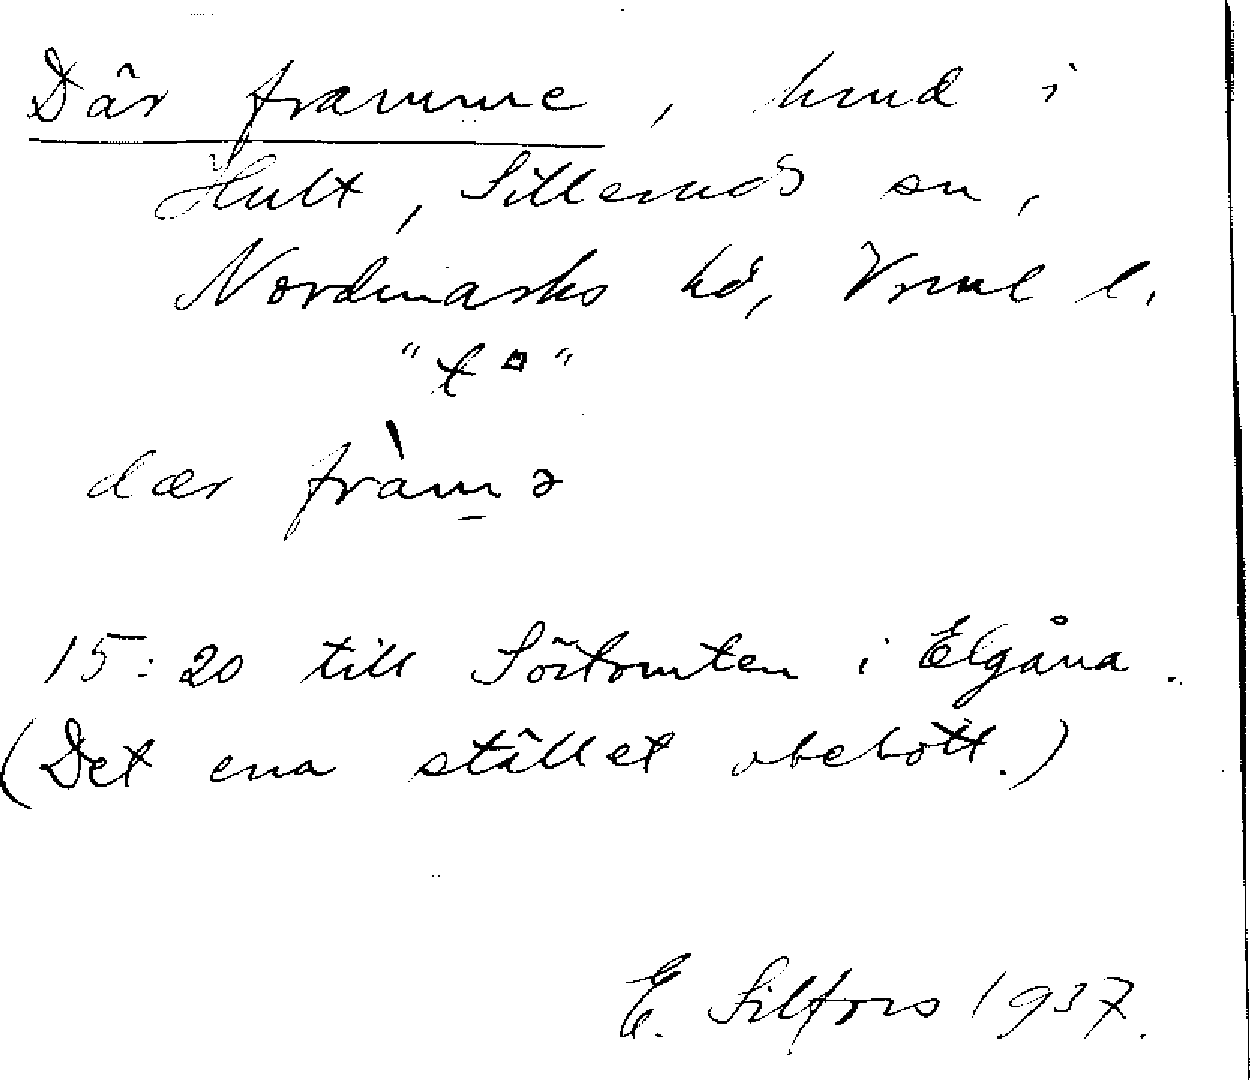 Där framme, hmd i
Hult, Sillerud sn,
Nordmarks hd, Vrml l.
"t¤"
dær fràmə
15:20 till Sörtomten i Elgåna.
(Det ena stället obebott.)
E. Silfors 1937.